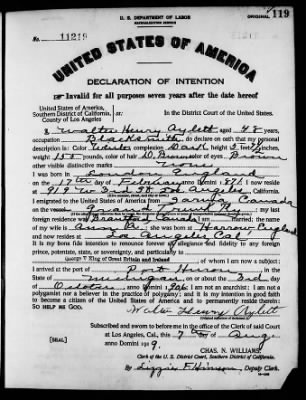 U. S. DEPARTMENT OF LABOR
NATURALIZATION SERVICE
ORIGINAL 119
No. 11219
UNITED STATES OF AMERICA
DECLARATION OF INTENTION
Invalid for all purposes seven years after the date hereof
United States of America,
Southern District of California,
County of Los Angeles
ss:
In the District Court of the United States.
I, Walter Henry Aylett, aged 48 years,
occupation Blacksmith, do declare on oath that my personal
description is: Color White, complexion Dark, height 5 feet inches,
weight pounds, color of hair D. Brown, color of eyes Brown
other visible distinctive marks
I was born in London England
on the 17th day of February, anno Domini 1871; I now reside
at 919 W 3rd St Los Angeles, California.
I emigrated to the United States of America from Sarnia Canada
on the vessel; my last
foreign residence was Brantford Canada; I am married; the name
of my wife is; she was born at Harrow England
and now resides at Los Angeles Cal.
It is my bona fide intention to renounce forever all allegiance and fidelity to any foreign
prince, potentate, state, or sovereignty, and particularly to
George V King of Great Britain and Ireland, of whom I am now a subject;
I arrived at the port of Port Huron, in the
State of Michigan, on or about the 3rd day
of October, anno Domini 1906; I am not an anarchist; I am not a
polygamist nor a believer in the practice of polygamy; and it is my intention in good faith
to become a citizen of the United States of America and to permanently reside therein:
SO HELP ME GOD.
Walter Henry Aylett
Subscribed and sworn to before me in the office of the Clerk of said Court
at Los Angeles, Cal., this 7th day of Aug.
anno Domini 1919.
[SEAL]
CHAS. N. WILLIAMS,
Clerk of the U. S. District Court, Southern District of California.
By, Deputy Clerk.